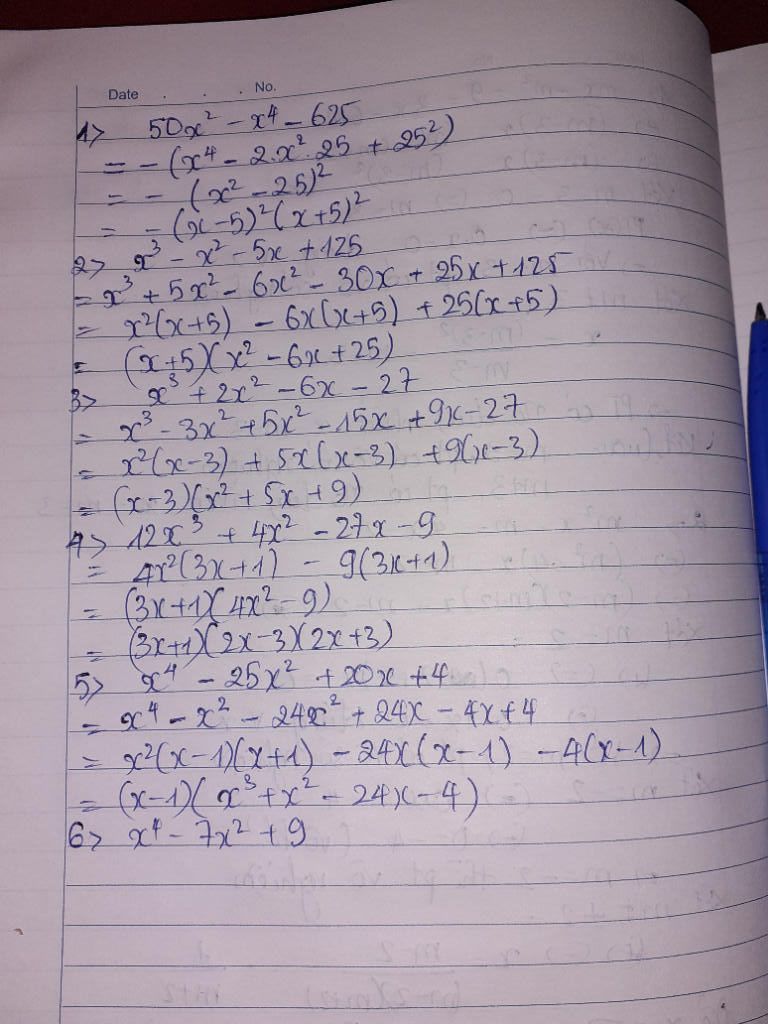 Date . . . No.
1> 50x² - x⁴ - 625
= -(x⁴ - 2.x².25 + 25²)
= - (x² - 25)²
= -(x-5)²(x+5)²
2> x³ - x² - 5x + 125
= x³ + 5x² - 6x² - 30x + 25x + 125
= x²(x+5) - 6x(x+5) + 25(x+5)
= (x+5)(x² - 6x + 25)
3> x³ + 2x² - 6x - 27
= x³ - 3x² + 5x² - 15x + 9x - 27
= x²(x-3) + 5x(x-3) + 9(x-3)
= (x-3)(x² + 5x + 9)
4> 12x³ + 4x² - 27x - 9
= 4x²(3x+1) - 9(3x+1)
= (3x+1)(4x² - 9)
= (3x+1)(2x-3)(2x+3)
5> x⁴ - 25x² + 20x + 4
= x⁴ - x² - 24x² + 24x - 4x + 4
= x²(x-1)(x+1) - 24x(x-1) - 4(x-1)
= (x-1)(x³ + x² - 24x - 4)
6> x⁴ - 7x² + 9